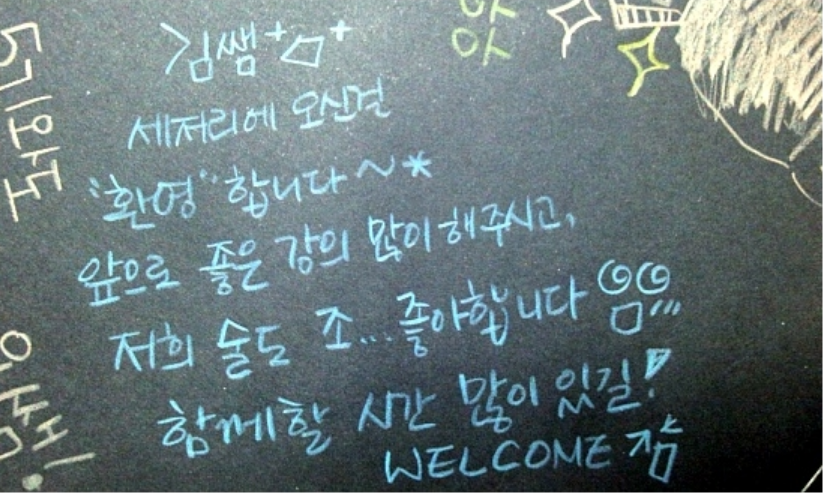 김쌤
세저리에 오신걸
"환영"합니다~*
앞으로 좋은 강의 많이 해주시고,
저희 술도 조...좋아합니다
함께할 시간 많이 있길!
WELCOME